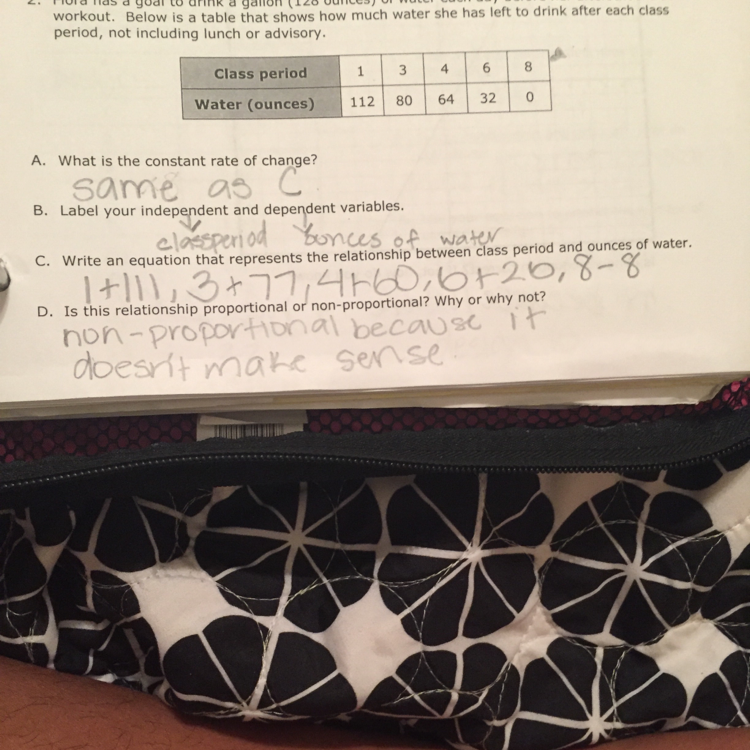 2. Flora has a goal to drink a gallon (128 ounces) of water each day
workout. Below is a table that shows how much water she has left to drink after each class
period, not including lunch or advisory.
Class period 1 3 4 6 8
Water (ounces) 112 80 64 32 0
A. What is the constant rate of change?
same as C
B. Label your independent and dependent variables.
classperiod ounces of water
C. Write an equation that represents the relationship between class period and ounces of water.
1+111, 3+77, 4+60, 6+26, 8-8
D. Is this relationship proportional or non-proportional? Why or why not?
non-proportional because it
doesn't make sense